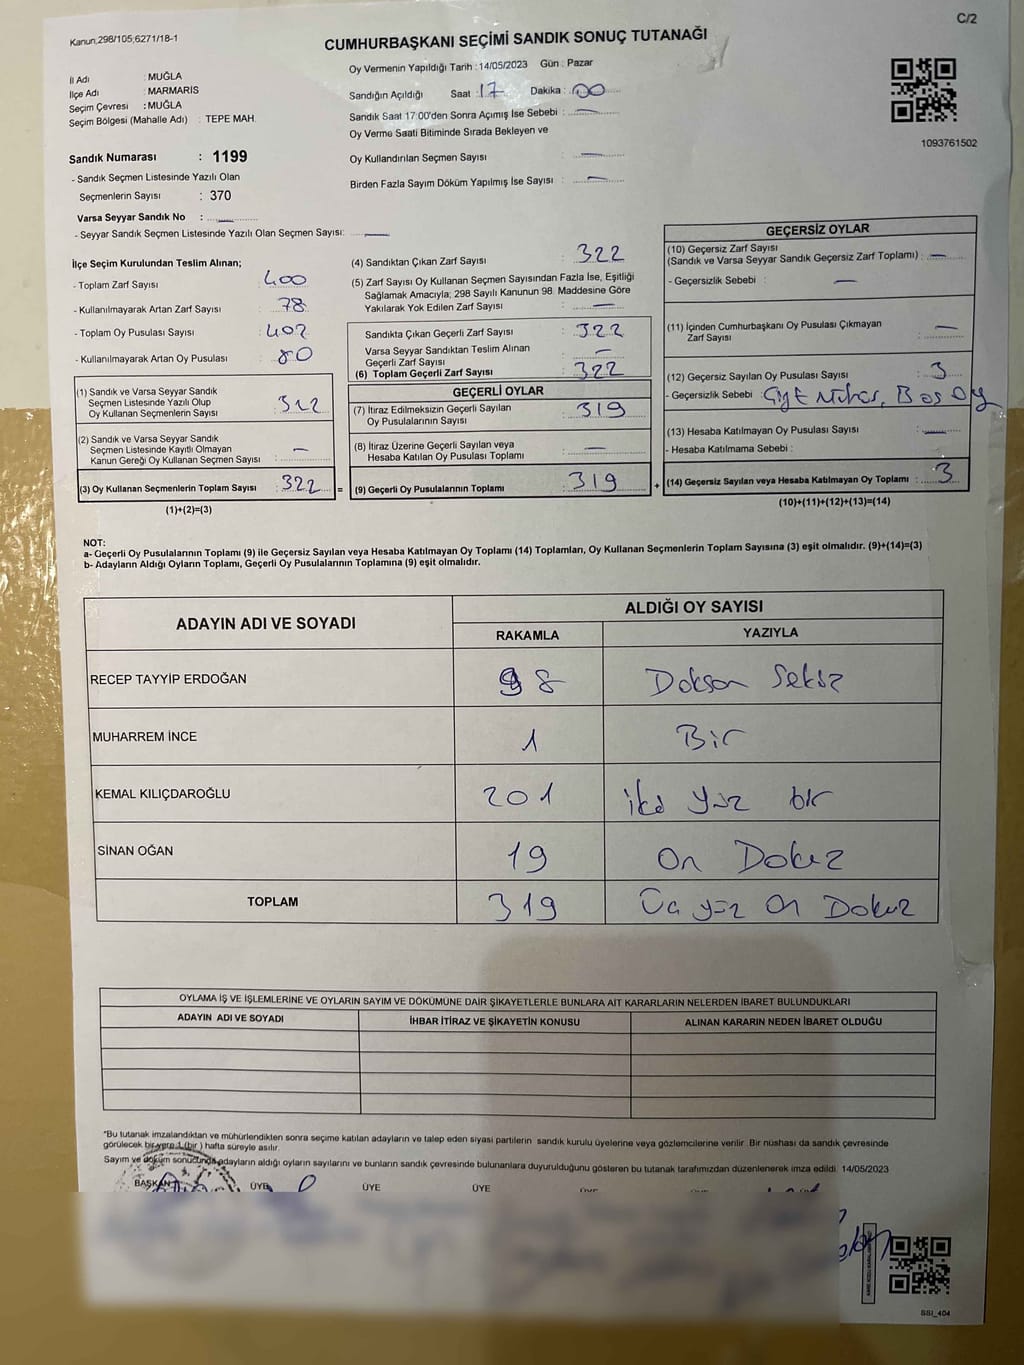 C/2
Kanun,298/105,6271/18-1
CUMHURBAŞKANI SEÇİMİ SANDIK SONUÇ TUTANAĞI
İl Adı : MUĞLA
İlçe Adı : MARMARİS
Seçim Çevresi : MUĞLA
Seçim Bölgesi (Mahalle Adı) : TEPE MAH.
Oy Vermenin Yapıldığı Tarih : 14/05/2023 Gün : Pazar
Sandığın Açıldığı Saat : 17 Dakika : 00
Sandık Saat 17:00'den Sonra Açımış İse Sebebi : —
Oy Verme Saati Bitiminde Sırada Bekleyen ve
Oy Kullandırılan Seçmen Sayısı : —
Birden Fazla Sayım Döküm Yapılmış İse Sayısı : —
1093761502
Sandık Numarası : 1199
- Sandık Seçmen Listesinde Yazılı Olan
Seçmenlerin Sayısı : 370
Varsa Seyyar Sandık No : —
- Seyyar Sandık Seçmen Listesinde Yazılı Olan Seçmen Sayısı: —
İlçe Seçim Kurulundan Teslim Alınan;
- Toplam Zarf Sayısı : 400
- Kullanılmayarak Artan Zarf Sayısı : 78
- Toplam Oy Pusulası Sayısı : 402
- Kullanılmayarak Artan Oy Pusulası : 80
(1) Sandık ve Varsa Seyyar Sandık
Seçmen Listesinde Yazılı Olup
Oy Kullanan Seçmenlerin Sayısı : 322
(2) Sandık ve Varsa Seyyar Sandık
Seçmen Listesinde Kayıtlı Olmayan
Kanun Gereği Oy Kullanan Seçmen Sayısı : —
(3) Oy Kullanan Seçmenlerin Toplam Sayısı : 322
(1)+(2)=(3)
(4) Sandıktan Çıkan Zarf Sayısı : 322
(5) Zarf Sayısı Oy Kullanan Seçmen Sayısından Fazla İse, Eşitliği
Sağlamak Amacıyla; 298 Sayılı Kanunun 98. Maddesine Göre
Yakılarak Yok Edilen Zarf Sayısı : —
Sandıkta Çıkan Geçerli Zarf Sayısı : 322
Varsa Seyyar Sandıktan Teslim Alınan
Geçerli Zarf Sayısı : —
(6) Toplam Geçerli Zarf Sayısı : 322
GEÇERLİ OYLAR
(7) İtiraz Edilmeksizin Geçerli Sayılan
Oy Pusulalarının Sayısı : 319
(8) İtiraz Üzerine Geçerli Sayılan veya
Hesaba Katılan Oy Pusulası Toplamı : —
= (9) Geçerli Oy Pusulalarının Toplamı : 319
GEÇERSİZ OYLAR
(10) Geçersiz Zarf Sayısı
(Sandık ve Varsa Seyyar Sandık Geçersiz Zarf Toplamı) : —
- Geçersizlik Sebebi : —
(11) İçinden Cumhurbaşkanı Oy Pusulası Çıkmayan
Zarf Sayısı : —
(12) Geçersiz Sayılan Oy Pusulası Sayısı : 3
- Geçersizlik Sebebi : Çift Mühür, Boş Oy
(13) Hesaba Katılmayan Oy Pusulası Sayısı : —
- Hesaba Katılmama Sebebi :
+ (14) Geçersiz Sayılan veya Hesaba Katılmayan Oy Toplamı : 3
(10)+(11)+(12)+(13)=(14)
NOT:
a- Geçerli Oy Pusulalarının Toplamı (9) ile Geçersiz Sayılan veya Hesaba Katılmayan Oy Toplamı (14) Toplamları, Oy Kullanan Seçmenlerin Toplam Sayısına (3) eşit olmalıdır. (9)+(14)=(3)
b- Adayların Aldığı Oyların Toplamı, Geçerli Oy Pusulalarının Toplamına (9) eşit olmalıdır.
ADAYIN ADI VE SOYADI
ALDIĞI OY SAYISI
RAKAMLA YAZIYLA
RECEP TAYYİP ERDOĞAN 98 Doksan Sekiz
MUHARREM İNCE 1 Bir
KEMAL KILIÇDAROĞLU 201 iki yüz bir
SİNAN OĞAN 19 On Dokuz
TOPLAM 319 Üç yüz On Dokuz
OYLAMA İŞ VE İŞLEMLERİNE VE OYLARIN SAYIM VE DÖKÜMÜNE DAİR ŞİKAYETLERLE BUNLARA AİT KARARLARIN NELERDEN İBARET BULUNDUKLARI
ADAYIN ADI VE SOYADI İHBAR İTİRAZ VE ŞİKAYETİN KONUSU ALINAN KARARIN NEDEN İBARET OLDUĞU
*Bu tutanak imzalandıktan ve mühürlendikten sonra seçime katılan adayların ve talep eden siyasi partilerin sandık kurulu üyelerine veya gözlemcilerine verilir. Bir nüshası da sandık çevresinde
görülecek bir yere 1 (bir ) hafta süreyle asılır.
Sayım ve döküm sonucunda adayların aldığı oyların sayılarını ve bunların sandık çevresinde bulunanlara duyurulduğunu gösteren bu tutanak tarafımızdan düzenlenerek imza edildi. 14/05/2023
BAŞKAN ÜYE ÜYE ÜYE
SSI_404